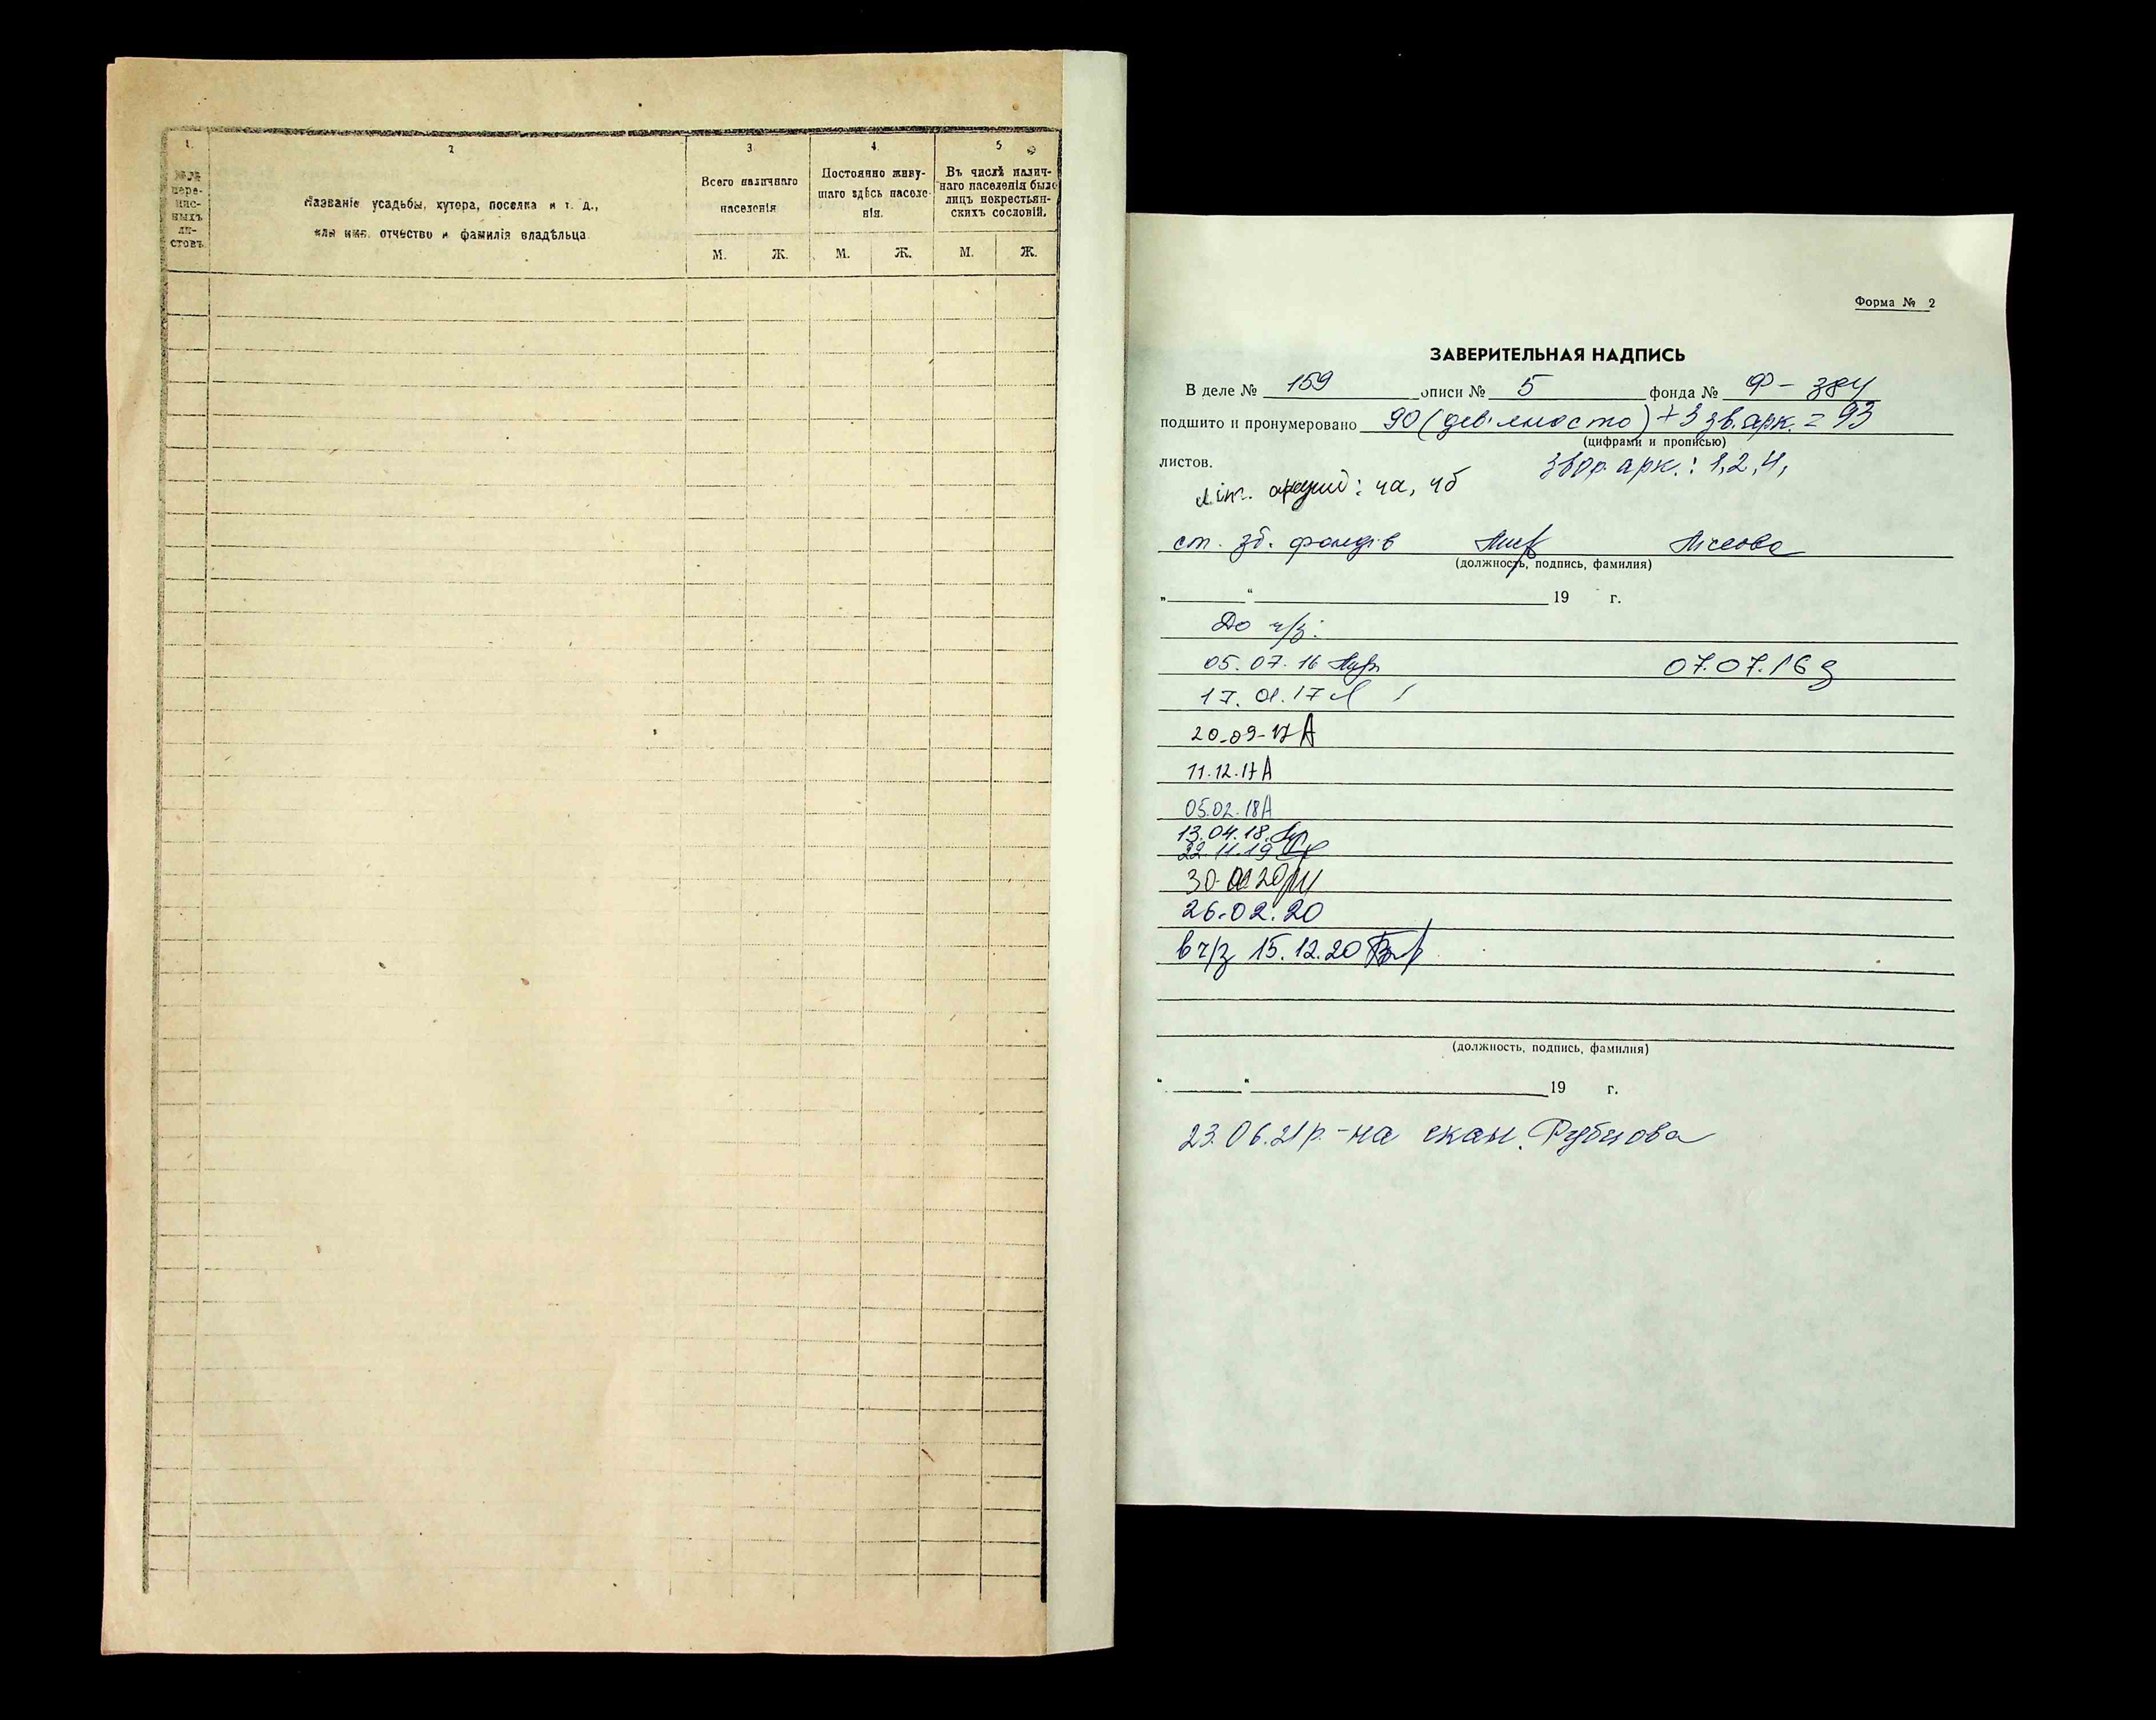 1.
2
3
4.
5
№№ пере-
пис-
ныхъ
ли-
стовъ.
Названіе усадьбы, хутора, поселка и т. д.,
или имя, отчество и фамилія владѣльца
Всего наличнаго
населенія
Постоянно живу-
щаго здѣсь населе-
нія.
Въ числѣ налич-
наго населенія было
лицъ некрестьян-
скихъ сословій.
М. Ж. М. Ж. М. Ж.
Форма № 2
ЗАВЕРИТЕЛЬНАЯ НАДПИСЬ
В деле № 159 описи № 5 фонда № Ф - 384
подшито и пронумеровано 90 (дев'яносто) + 3 зв. арк. = 93
(цифрами и прописью)
листов.
звор. арк.: 1, 2, 4,
літ. аркуші: 4а, 4б
ст. зб. фондів
(должность, подпись, фамилия)
„ “ 19 г.
До ч/з:
05.07.16 07.07.16
17.01.17
20-09-17 А
11.12.17 А
05.02.18 А
13.04.18
22.11.19
30. 20
26.02.20
в ч/з 15.12.20
(должность, подпись, фамилия)
„ “ 19 г.
23.06.21р. - на скан. Рубцова